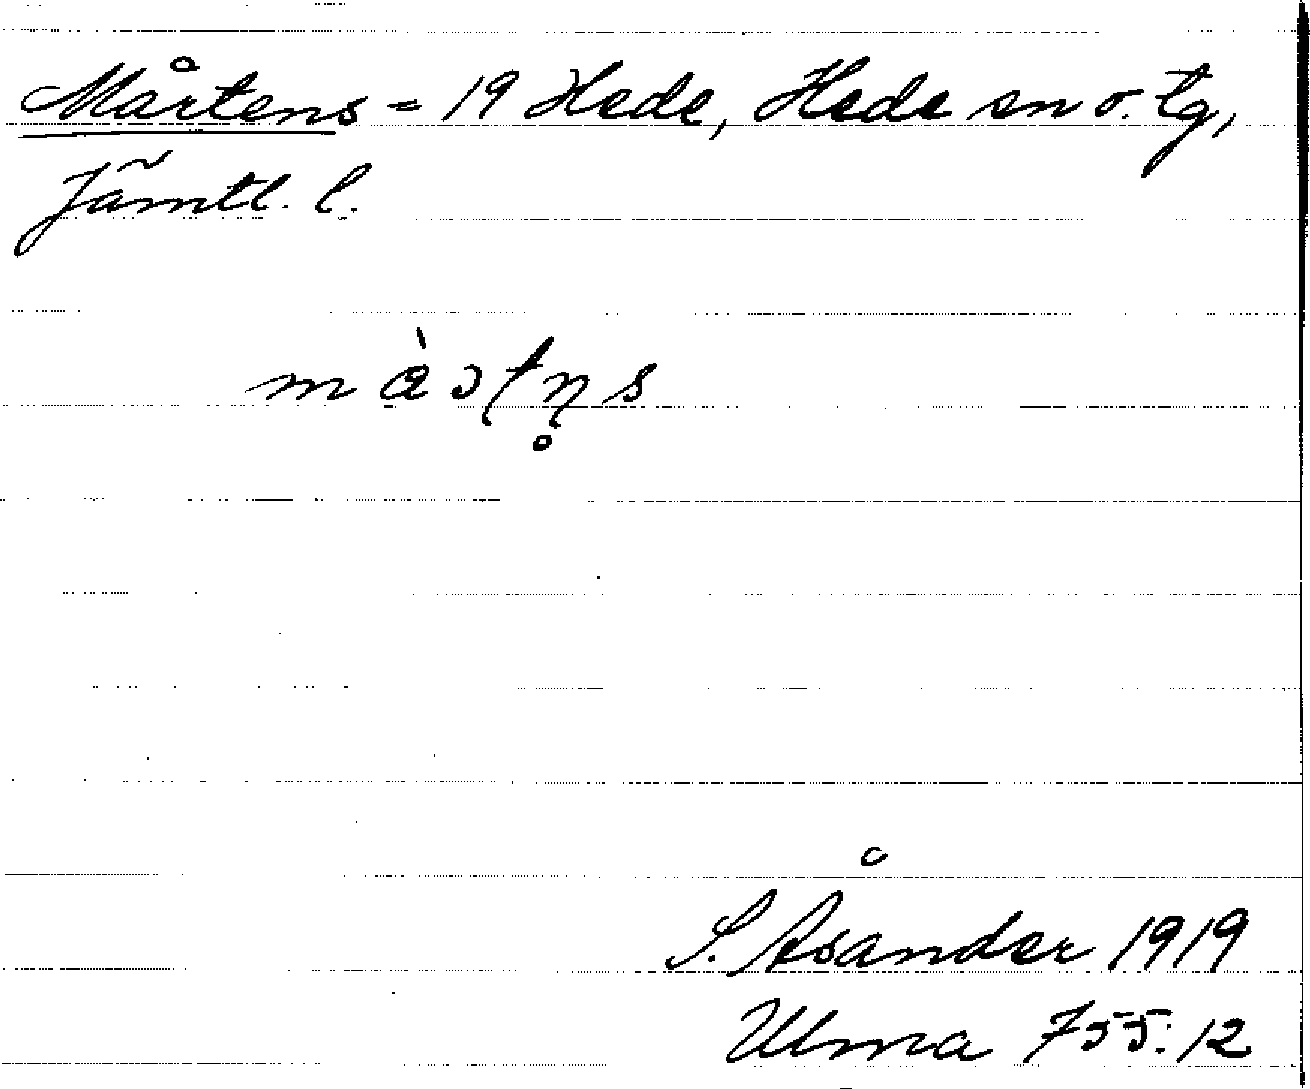 Mårtens = 19 Hede, Hede sn o. tg,
Jämtl. l.
m à ɔ ʈ ṇ̊ s
S. Åsander 1919
Ulma 755:12